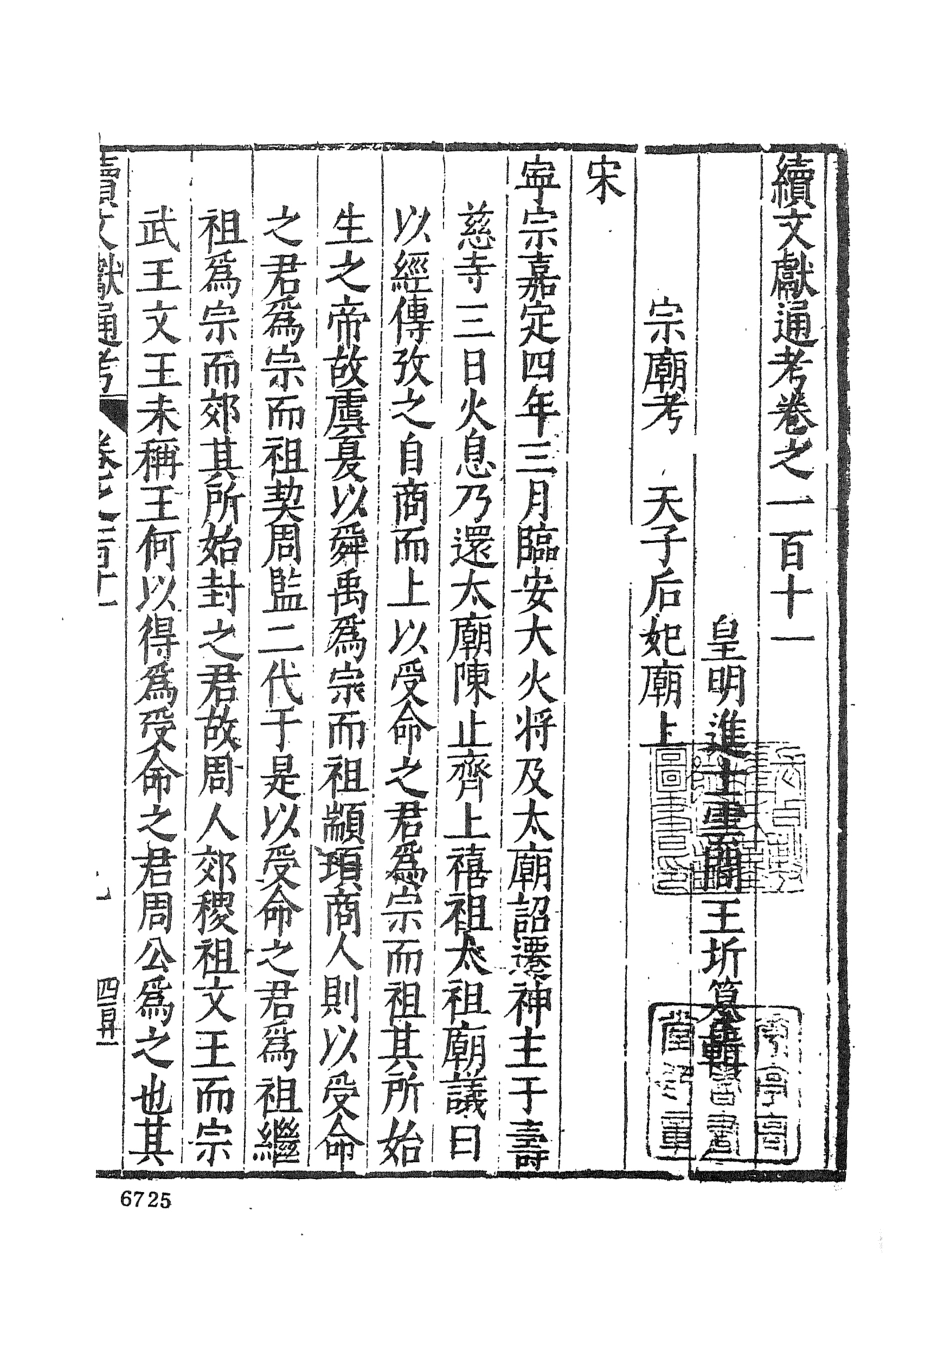 續文獻通考卷之一百十一
皇明進士雲間王圻纂輯
宗廟考 天子后妃廟上
宋
寧宗嘉定四年三月臨安大火將及太廟詔遷神主于壽
慈寺三日火息乃還太廟陳止齊上禧祖太祖廟議曰
以經傳攷之自商而上以受命之君爲宗而祖其所始
生之帝故虞夏以舜禹爲宗而祖顓頊商人則以受命
之君爲宗而祖契周監二代于是以受命之君爲祖繼
祖爲宗而郊其所始封之君故周人郊稷祖文王而宗
武王文王未稱王何以得爲受命之君周公爲之也其
續文獻通考
6725